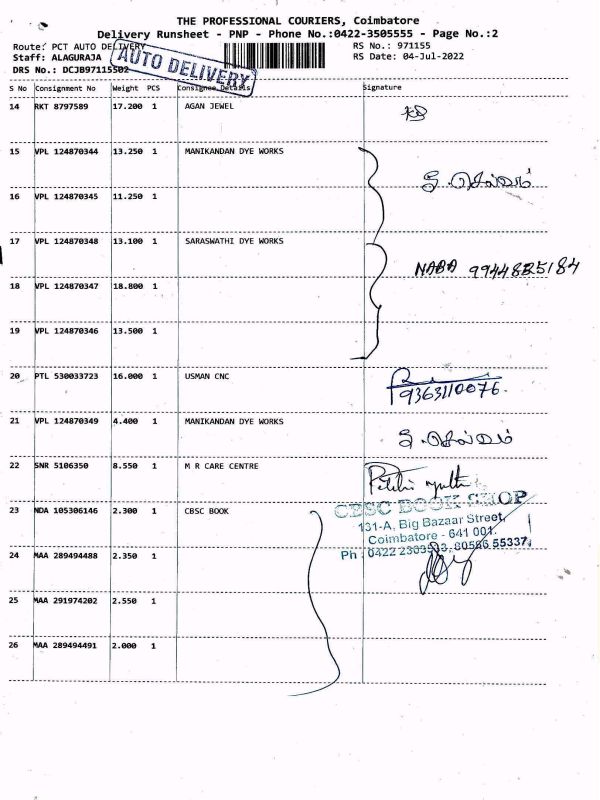 THE PROFESSIONAL COURIERS, Coimbatore
Delivery Runsheet - PNP - Phone No.:0422-3505555 - Page No.:2
Route: PCT AUTO DELIVERY
RS No.: 971155
Staff: ALAGURAJA
RS Date: 04-Jul-2022
DRS No.: DCJB97115502
AUTO DELIVERY
S No Consignment No Weight PCS Consignee Details Signature
14 RKT 8797589 17.200 1 AGAN JEWEL
15 VPL 124870344 13.250 1 MANIKANDAN DYE WORKS
தி. செல்வம்
16 VPL 124870345 11.250 1
17 VPL 124870348 13.100 1 SARASWATHI DYE WORKS
NABA
18 VPL 124870347 18.800 1
19 VPL 124870346 13.500 1
20 PTL 530033723 16.000 1 USMAN CNC
9363110076.
21 VPL 124870349 4.400 1 MANIKANDAN DYE WORKS
தி. செல்வம்
22 SNR 5106350 8.550 1 M R CARE CENTRE
23 NDA 105306146 2.300 1 CBSC BOOK
CBSC BOOK SHOP
131-A, Big Bazaar Street,
Coimbatore - 641 001.
Ph : 0422 2303533, 80586 55337
24 MAA 289494488 2.350 1
25 MAA 291974202 2.550 1
26 MAA 289494491 2.000 1